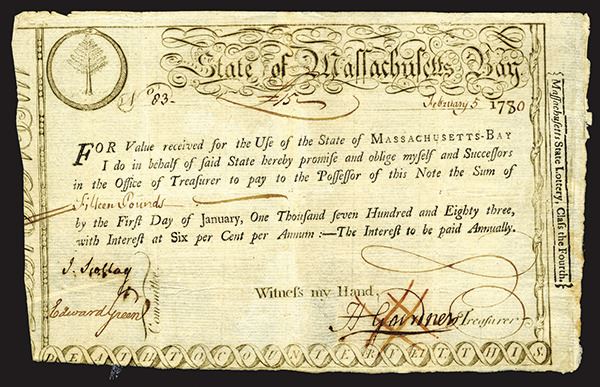 State of Massachusetts Bay.
No. 83-
£15
February 5 1780
FOR Value received for the Use of the State of MASSACHUSETTS-BAY
I do in behalf of said State hereby promise and oblige myself and Successors
in the Office of Treasurer to pay to the Possessor of this Note the Sum of
Fifteen Pounds
by the First Day of January, One Thousand seven Hundred and Eighty three,
with Interest at Six per Cent per Annum:—The Interest to be paid Annually.
Witness my Hand,
Edward Green
Committee
H Gardner Treasurer
DEATH TO COUNTERFEIT THIS.
Massachusetts State Lottery, Class the Fourth.